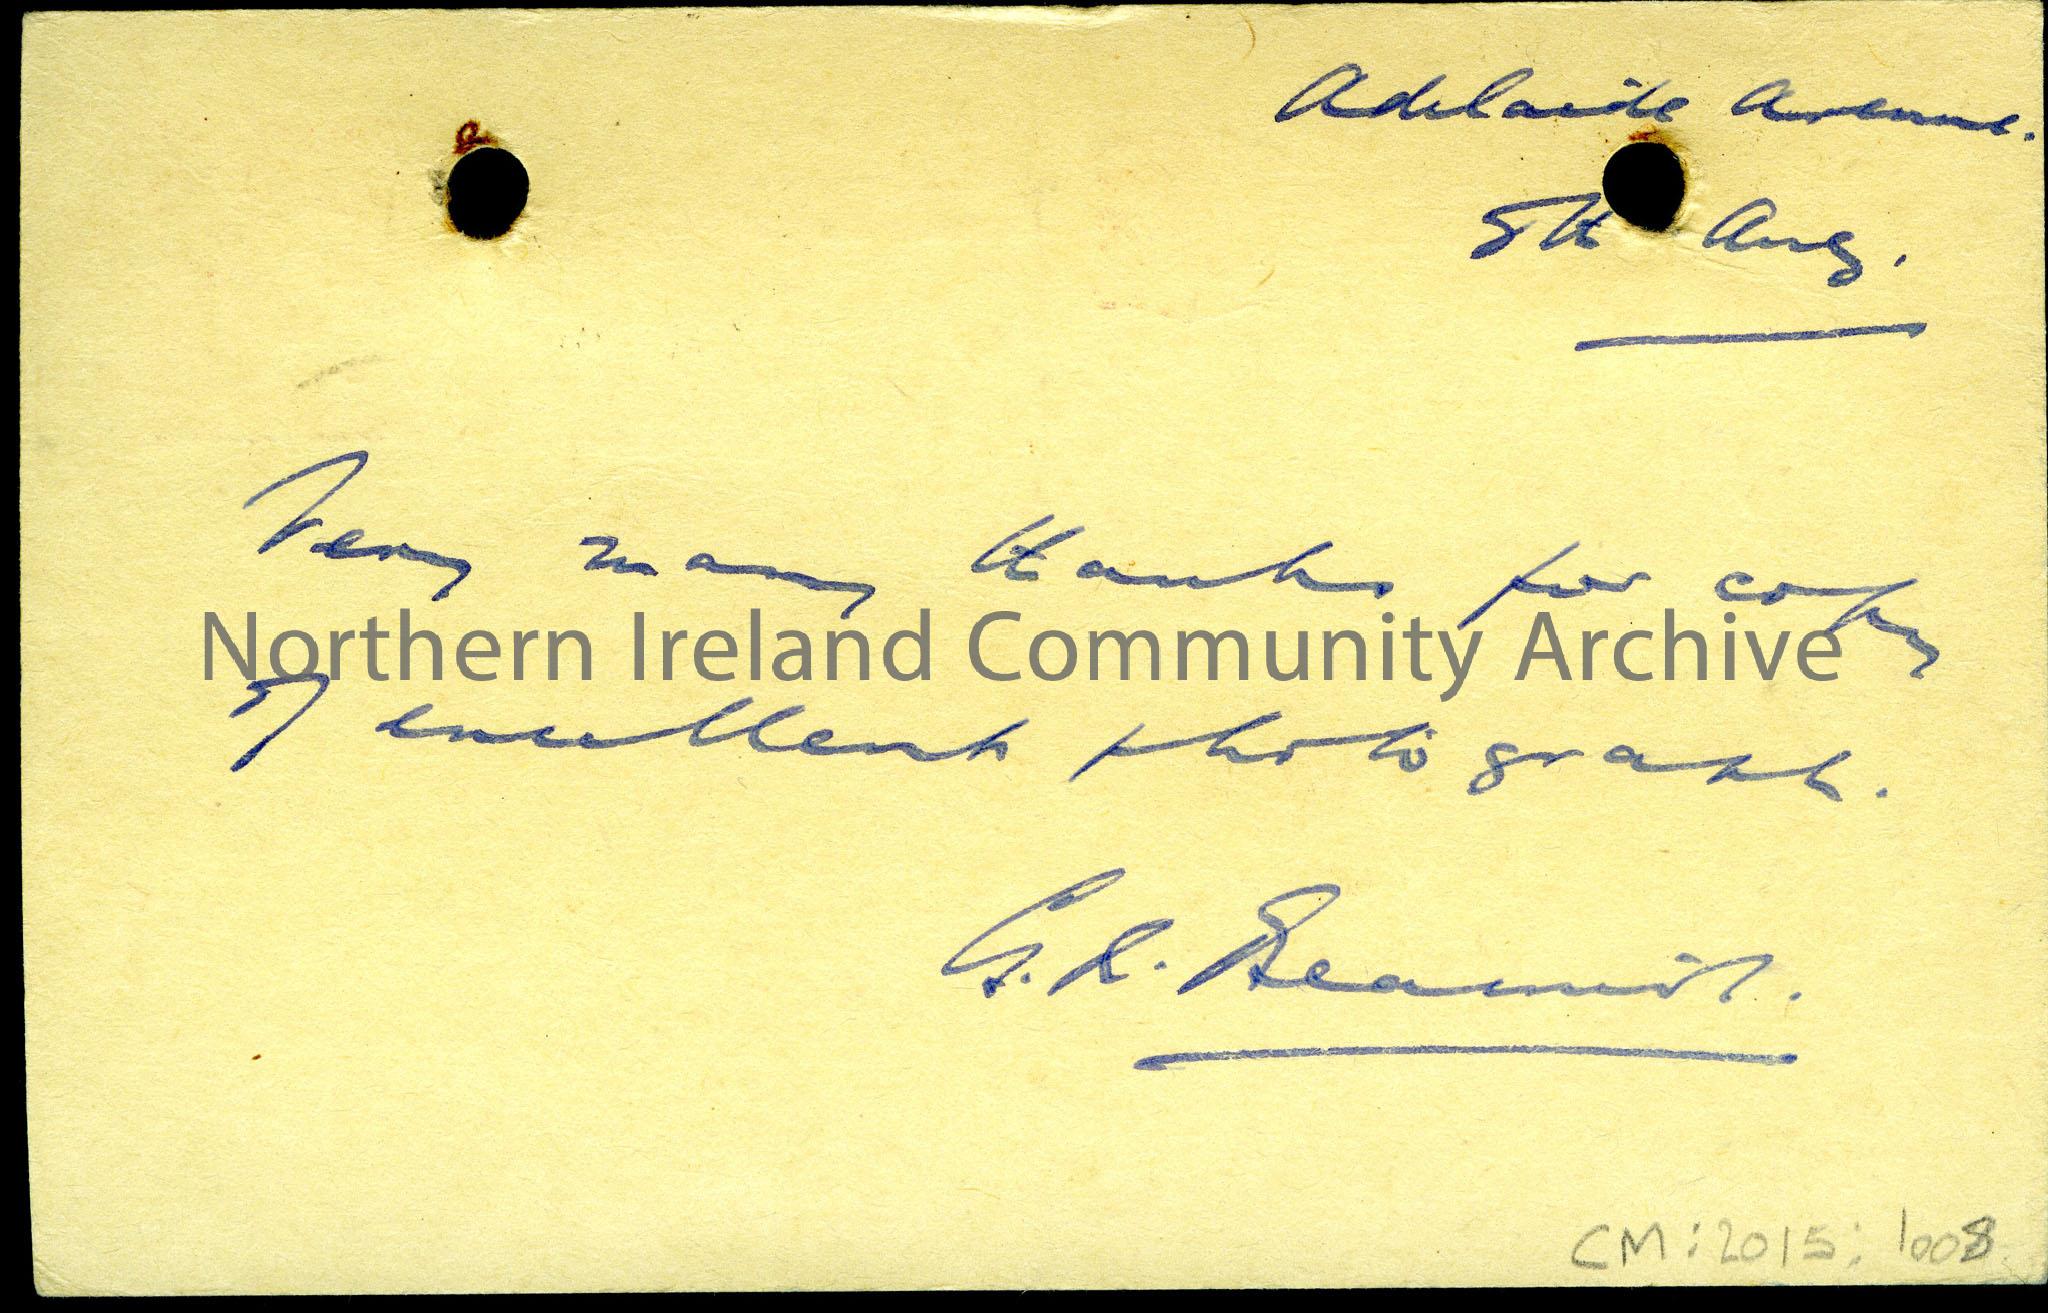 Adelaide Avenue.
5th Aug.
Very many thanks for copy
Northern Ireland Community Archive
of excellent photograph.
G. R. Beamish.
CM:2015:1008